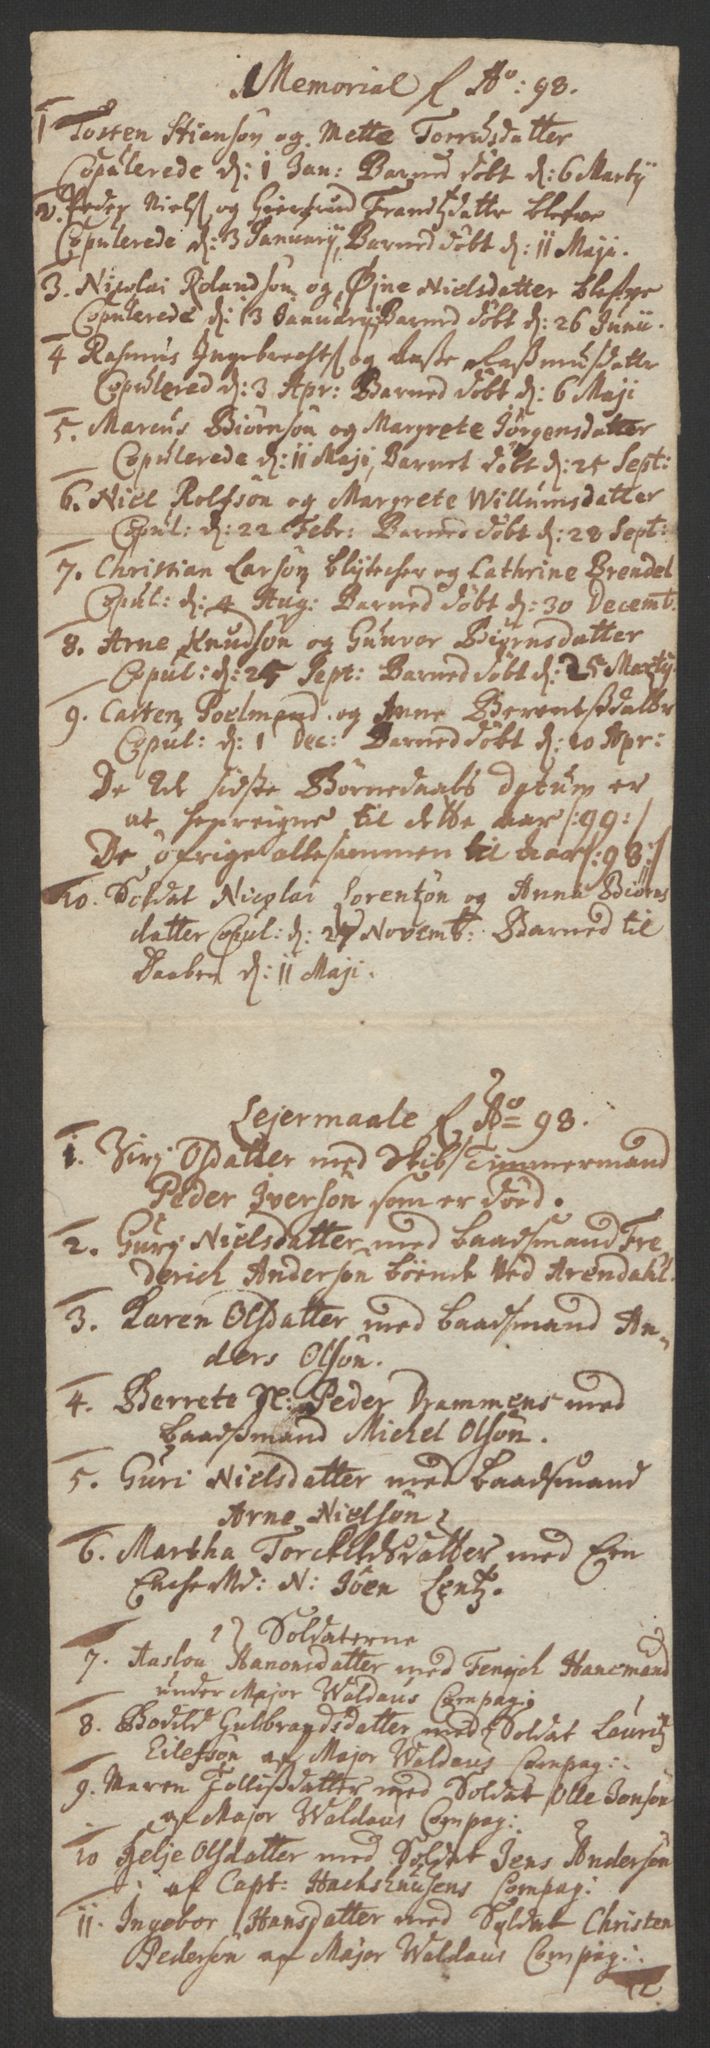 Memorial f Ao: 98.
1 Tosten Stiensøn og Mette Torrisdatter
Copulerede d: 1 Jan: Barned døbt d: 6 Marty
2. Peder Niels og Giertrud Frandsdatter blefve
Copulerede d: 3 January, Barned døbt d: 11 Maji.
3. Nicolai Rolandsøn og Øjne Nielsdatter blefve
Copulerede d: 3 January, Barned døbt d: 26 Junii.
4 Rasmus Ingebrechts og Aasse Rasmusdatter
Copulered d: 3 Apr: Barned døbt d: 6 Maji
5. Marcus Biørnsøn og Margrete Jørgensdatter
Copulerede d: 11 Maji, Barnet døbt d: 25 Sept:
6. Niel Rolfsøn og Margrete Willumsdatter
Copul: d: 22 Febr: Barned døbt d: 28 Sept:
7. Christian Larsøn Blytecher og Cathrine Brendel
Copul: d: 4 Aug: Barned døbt d: 30 Decemb.
8. Arne Knudsøn og Gunvor Biørnsdatter
Copul: d: 25 Sept: Barned døbt d: 25 Marty.
9. Casten Poelmand og Anne Berentsdatter
Copul: d: 1 Dec: Barned døbt d: 20 Apr:
De 2de sidste Børnedaabs datum er
at henreigne til dette aar /:99:/
De øfrige allesammen til aar /:98:/
10. Soldat Nicolai Lorentsøn og Anna Biørns
datter Copul: d: 27 Novemb: Barned til
Daaben d: 11 Maji.
Lejermaale f Ao 98.
1. Sirj Olsdatter med Skibs Timmermand
Peder Iversøn som er død.
2. Gurj Nielsdatter med baadsmand Fre
derich Andersøn böende ved Arendahl.
3. Karen Olsdatter med baadsmand An„
ders Olsøn.
4. Berrete N: Peder Drammens med
baadsmand Michel Olsøn.
5. Guri Nielsdatter med baadsmand
Arne Nielsøn
6. Martha Torchildsdatter med Een
EncheMd: N: Jöen Lentz.
Soldaterne
7. Aaslou Aanonsdatter med Fenrich Hanemand
under Major Waldaus Compag:
8. Bodild Gulbrandsdatter med Soldat Lauritz
Eilefsøn af Major Waldaus Compag:
9. Maren Tollisdatter med Soldat Olle Jonsøn
af Major Waldaus Compag:
10 Helje Olsdatter med Soldat Jens Andersøn
af Capt: Hachshusens Compag:
11. Ingebor Hansdatter med Soldat Christen
Pedersøn af Major Waldaus Compag: